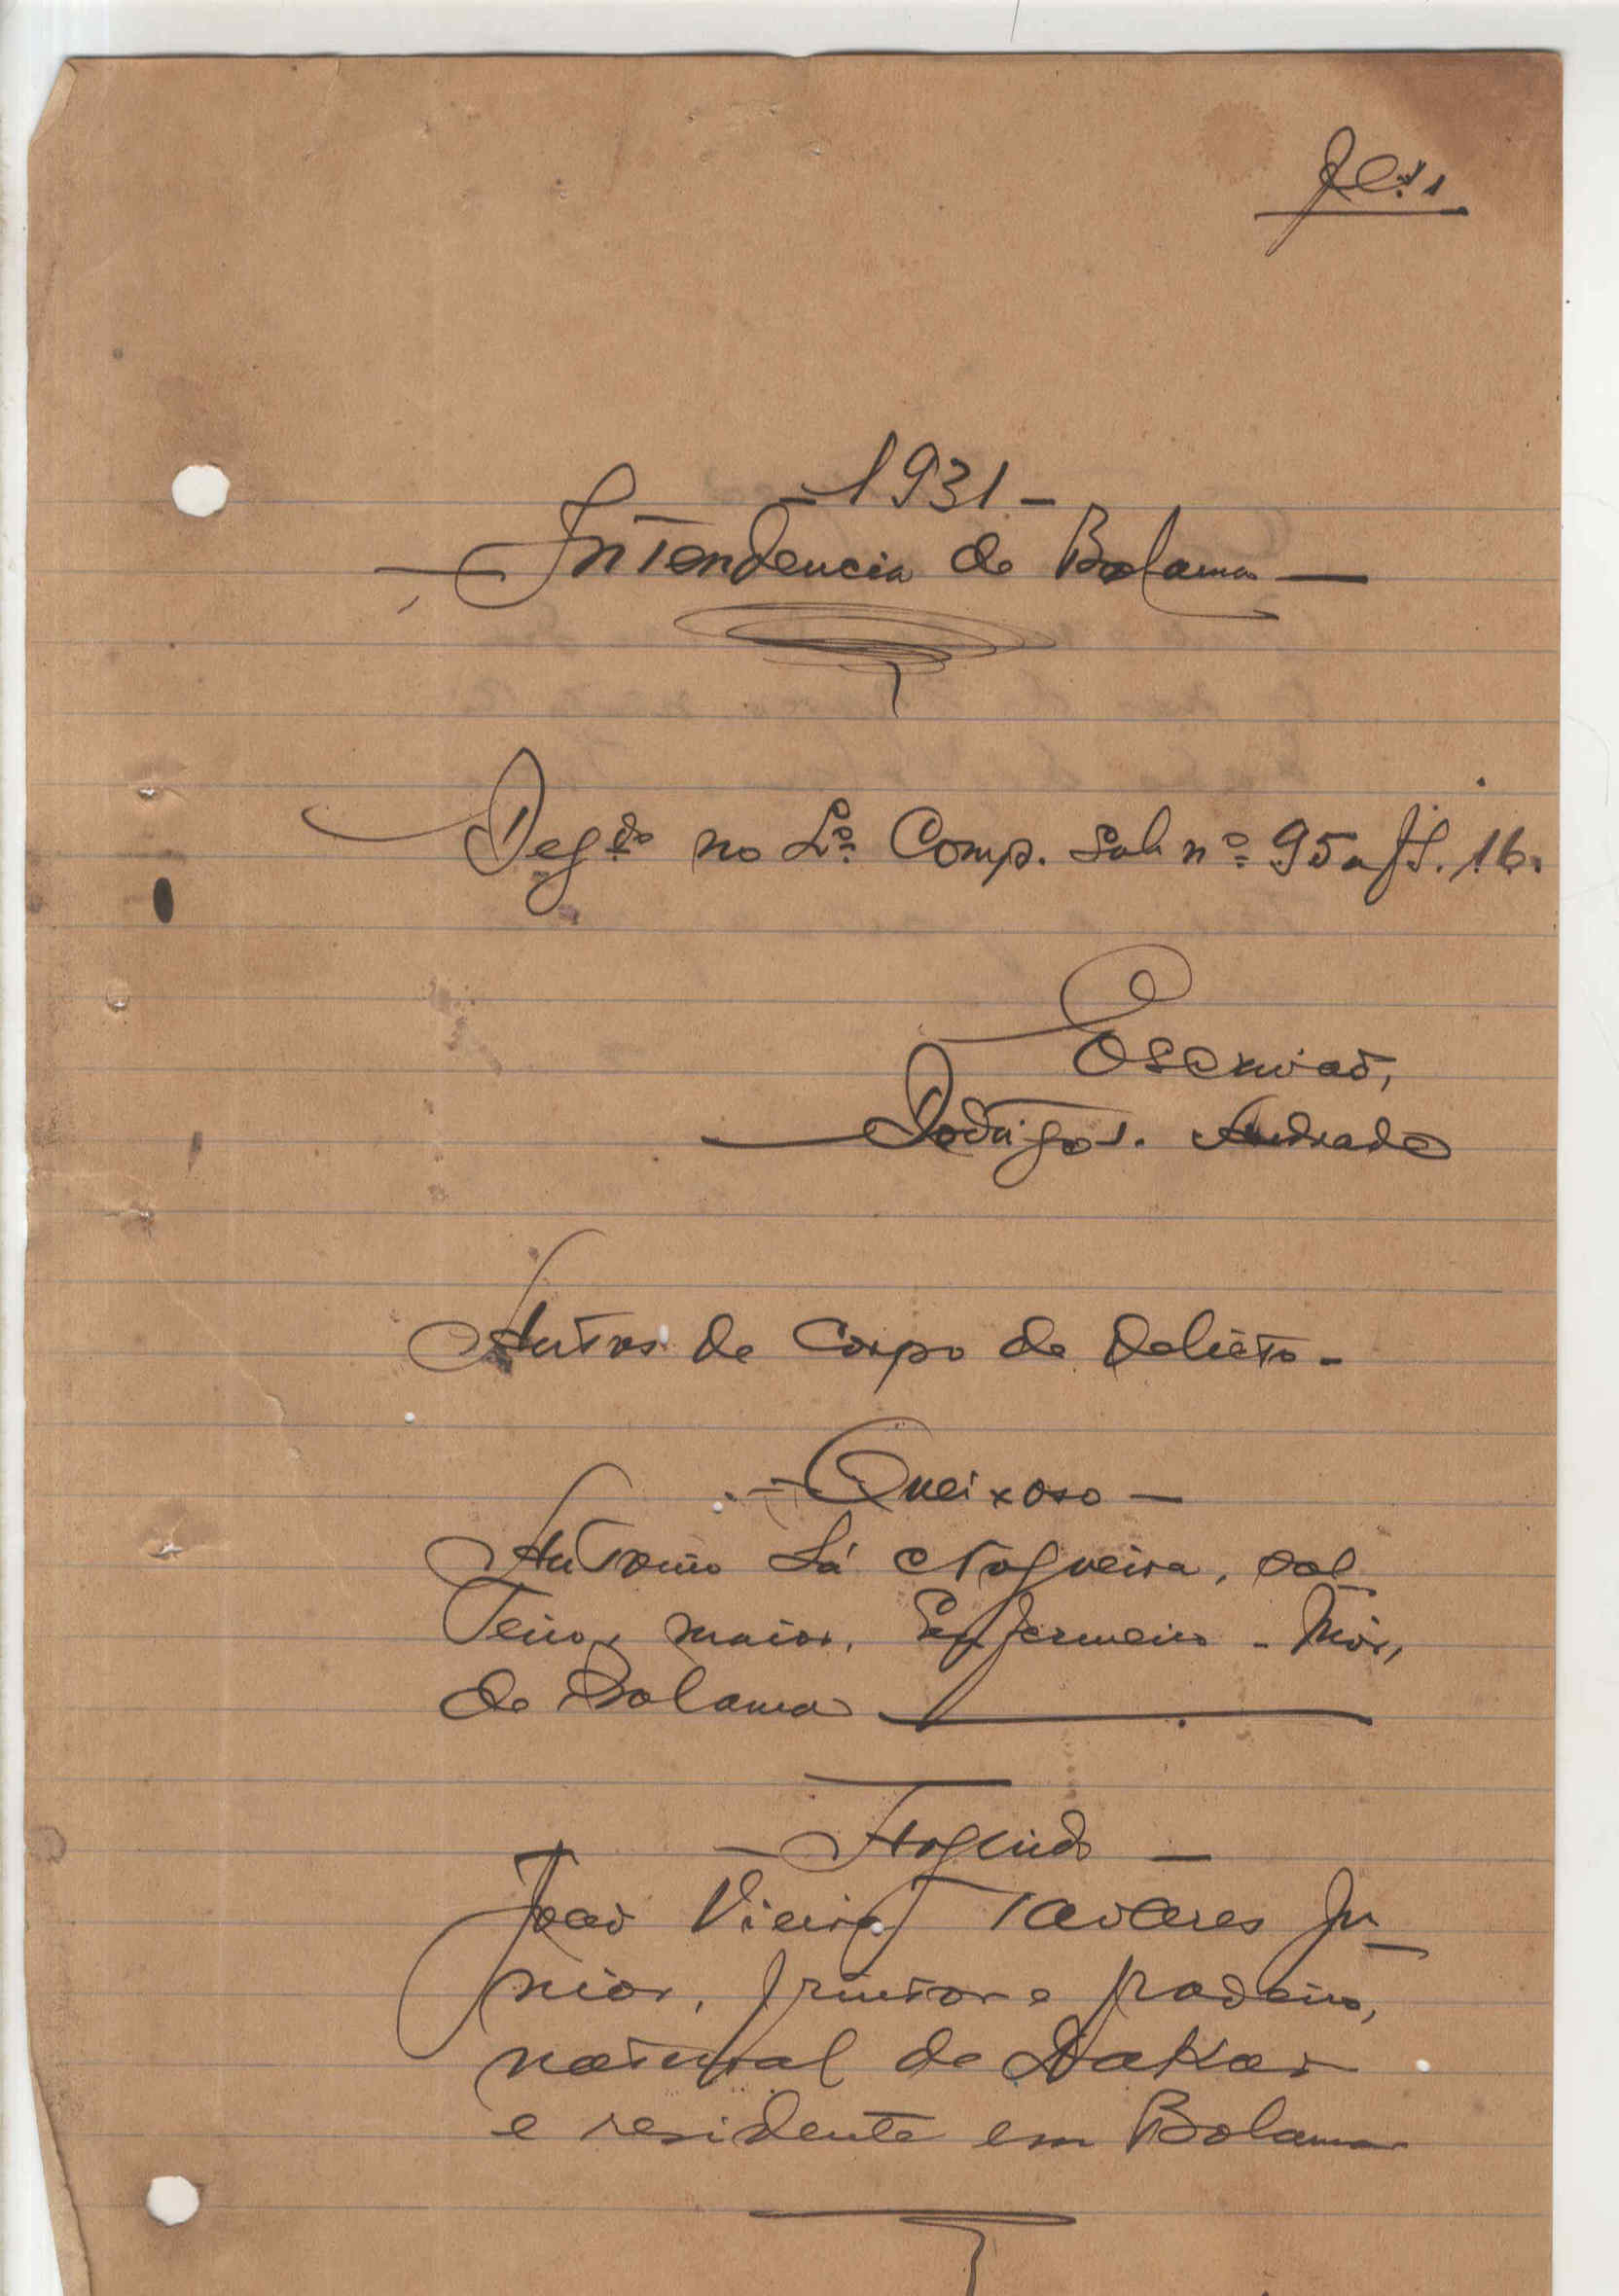 Fl. 1
- 1931 -
Intendencia de Bolama
Regdo no Lo. Comp. sob no. 95 a fl. 16.
O Escrivão,
Rodrigo J. Andrade
Autos de Corpo de delicto -
- Queixoso -
Antonio Sá Nogueira, sol
teiro, maior, Enfermeiro - Mór,
de Bolama
- Arguido -
João Vieira Tavares Ju
nior, pintor e padeiro,
natural de Dakar
e residente em Bolama